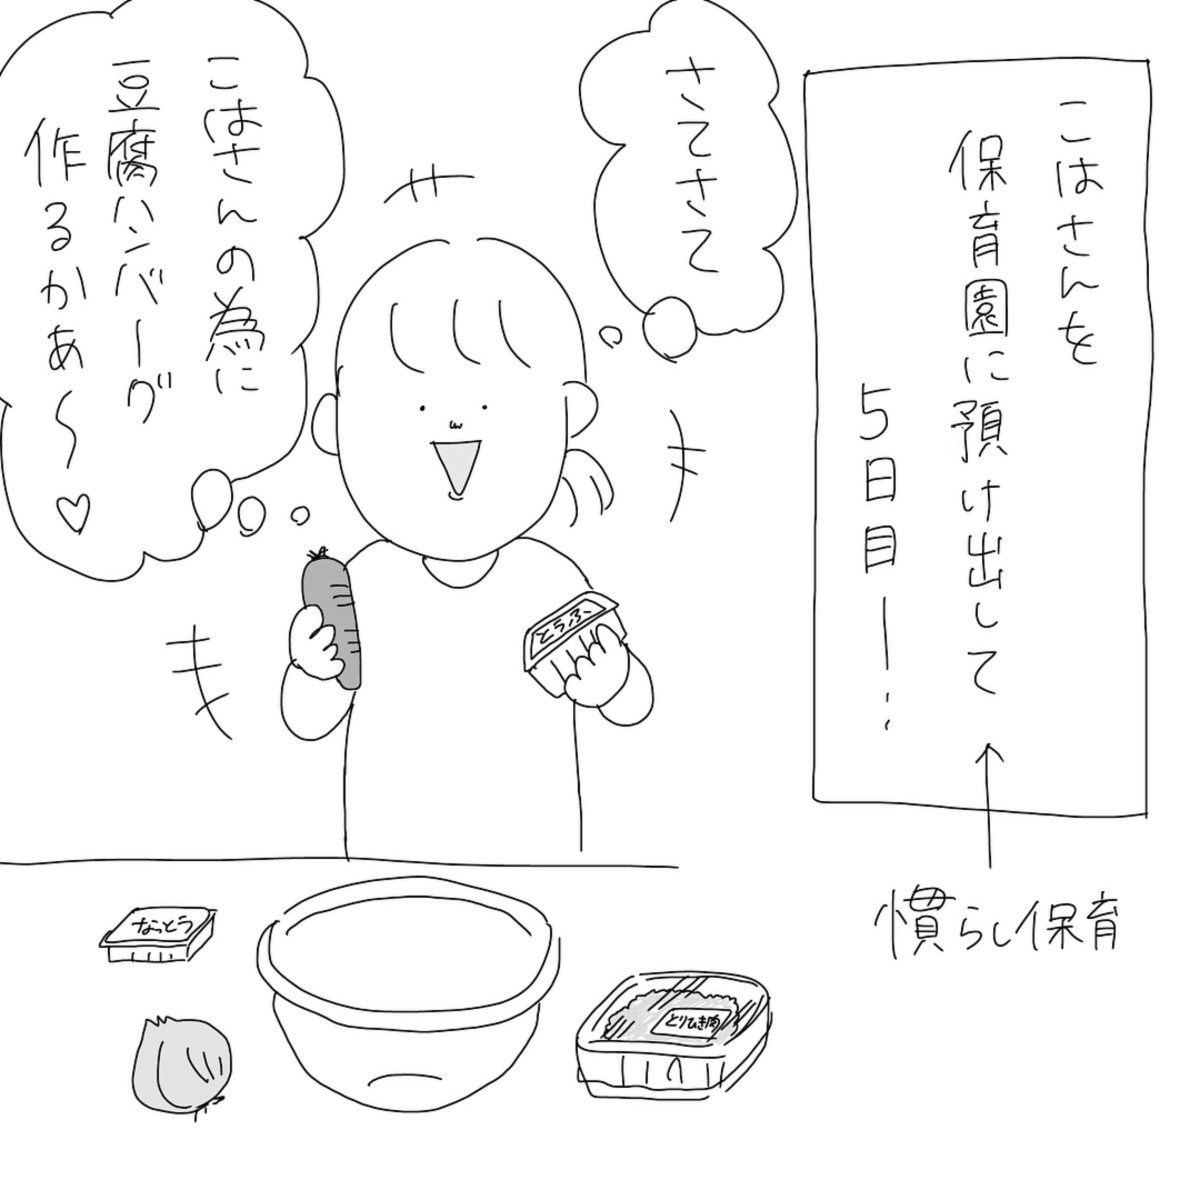 こはさんを
保育園に預け出して
5日目ー…
慣らし保育
さてさて
こはさんの為に
豆腐ハンバーグ
作るかぁ〜♡
とうふ
なっとう
とりひき肉